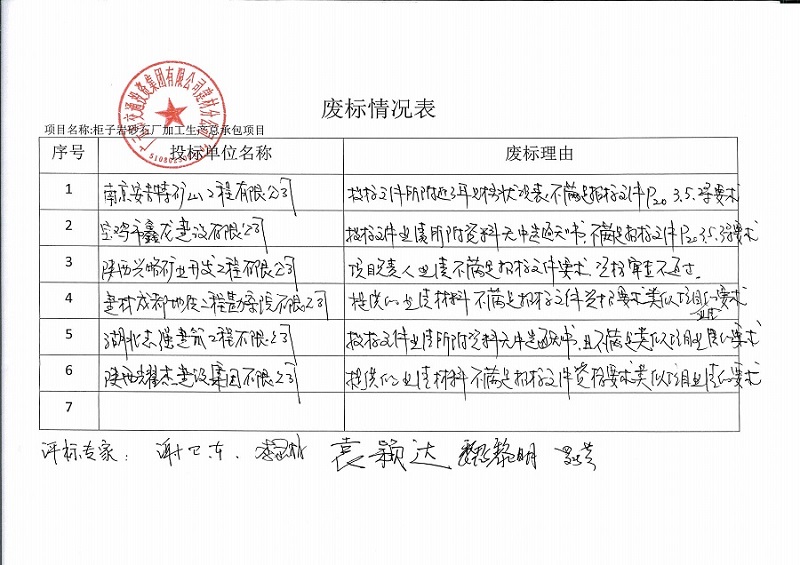 废标情况表
项目名称:柜子岩砂石厂加工生产总承包项目
序号 投标单位名称 废标理由
1 南京安吉特矿山工程有限公司 投标文件所附近3年 不满足招标文件P20 3.5. 要求
2 宝鸡市鑫龙建设有限公司 投标文件业绩所附资料无中选通知书,不满足招标文件P20 3.5. 要求
3 陕西兴略矿业开发工程有限公司 项目负责人业绩不满足招标文件要求,资格审查不通过.
4 建材成都地质工程勘察院有限公司 提供的业绩材料不满足招标文件资格要求类似项目业绩的要求
5 湖北志强建筑工程有限公司 投标文件业绩所附资料无中选通知书,且不满足类似项目业绩的要求
6 陕西耀杰建设集团有限公司 提供的业绩材料不满足招标文件资格要求类似项目业绩的要求
7
评标专家: 谢卫东. 袁颖达 黎明